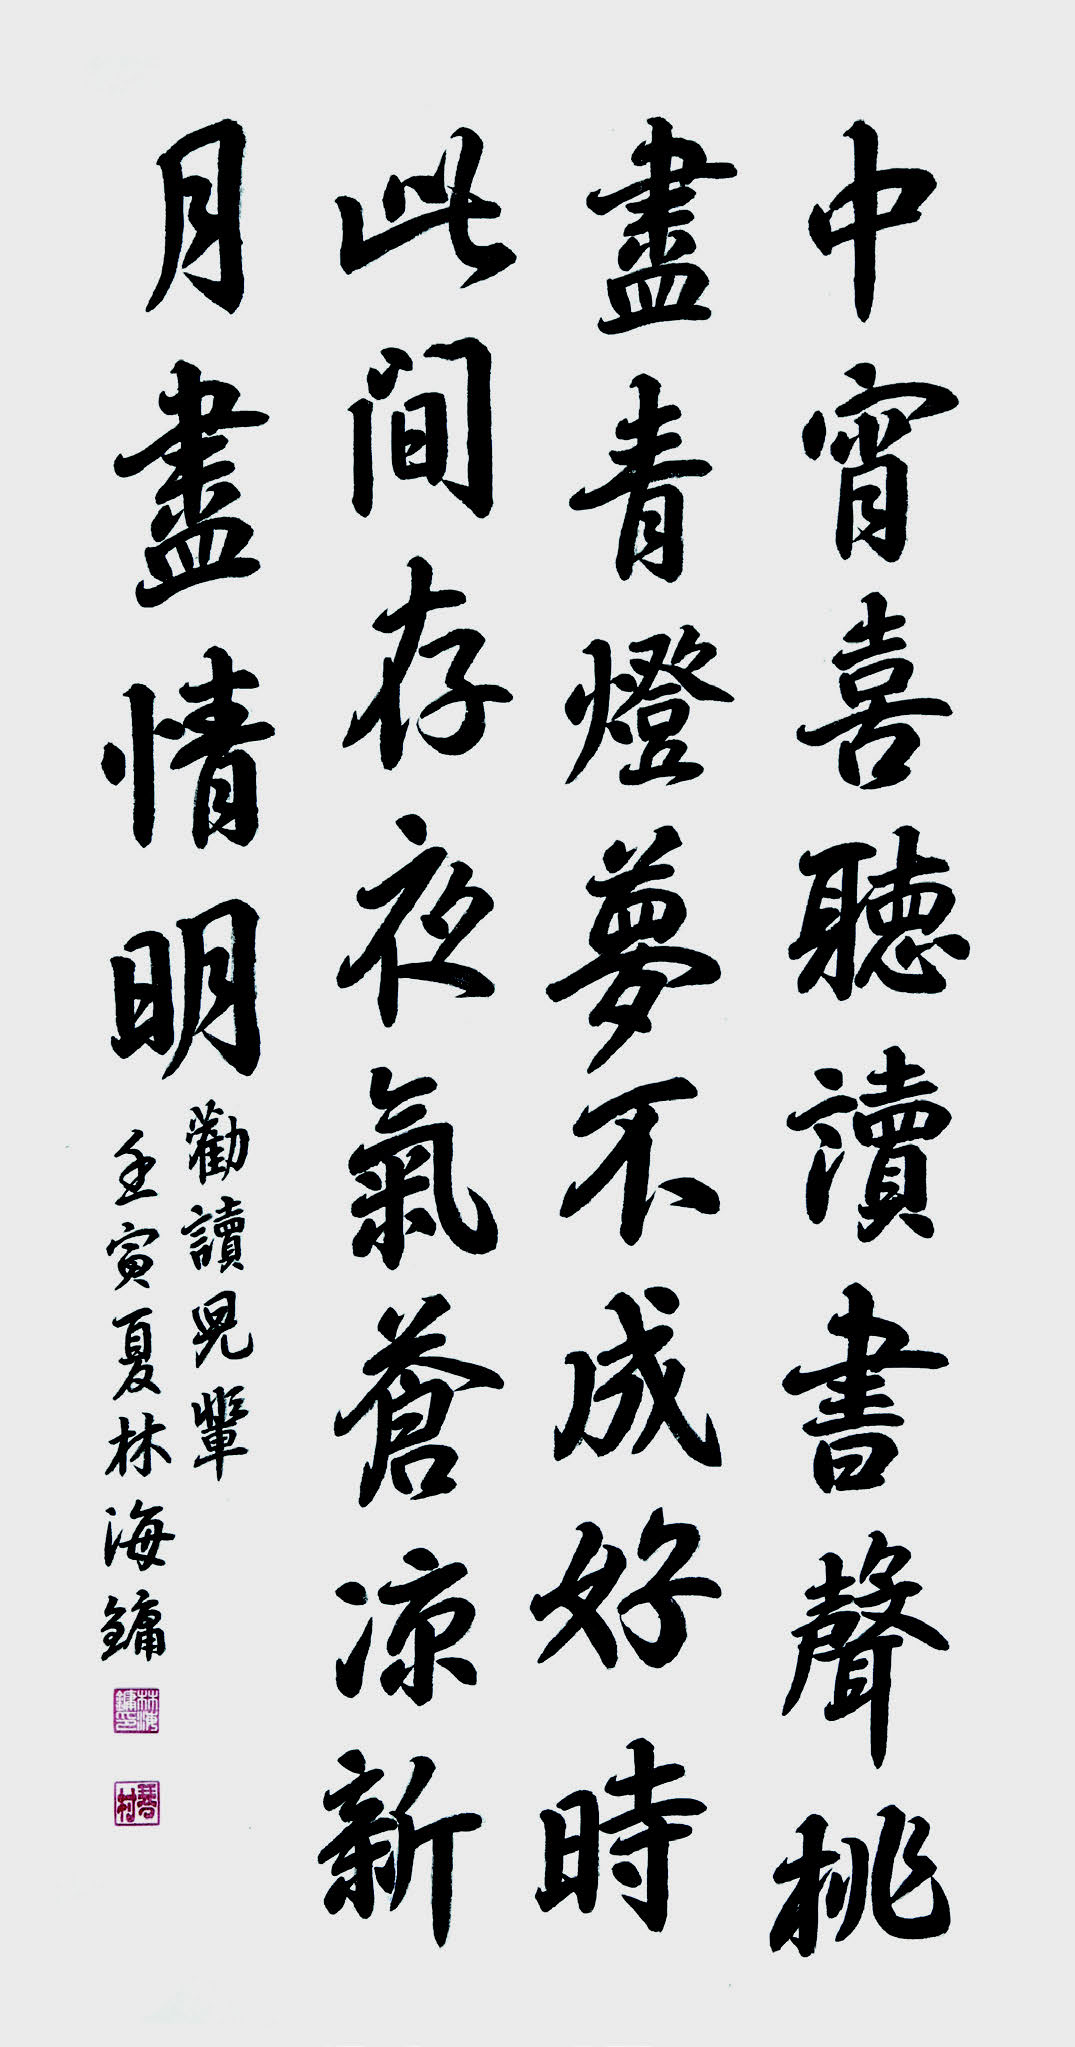 中宵喜聽讀書聲桃
盡青燈夢不成好時
此間存夜氣蒼涼新
月盡情明
勸讀兒輩
壬寅夏林海鏞
林海鏞印
琴村